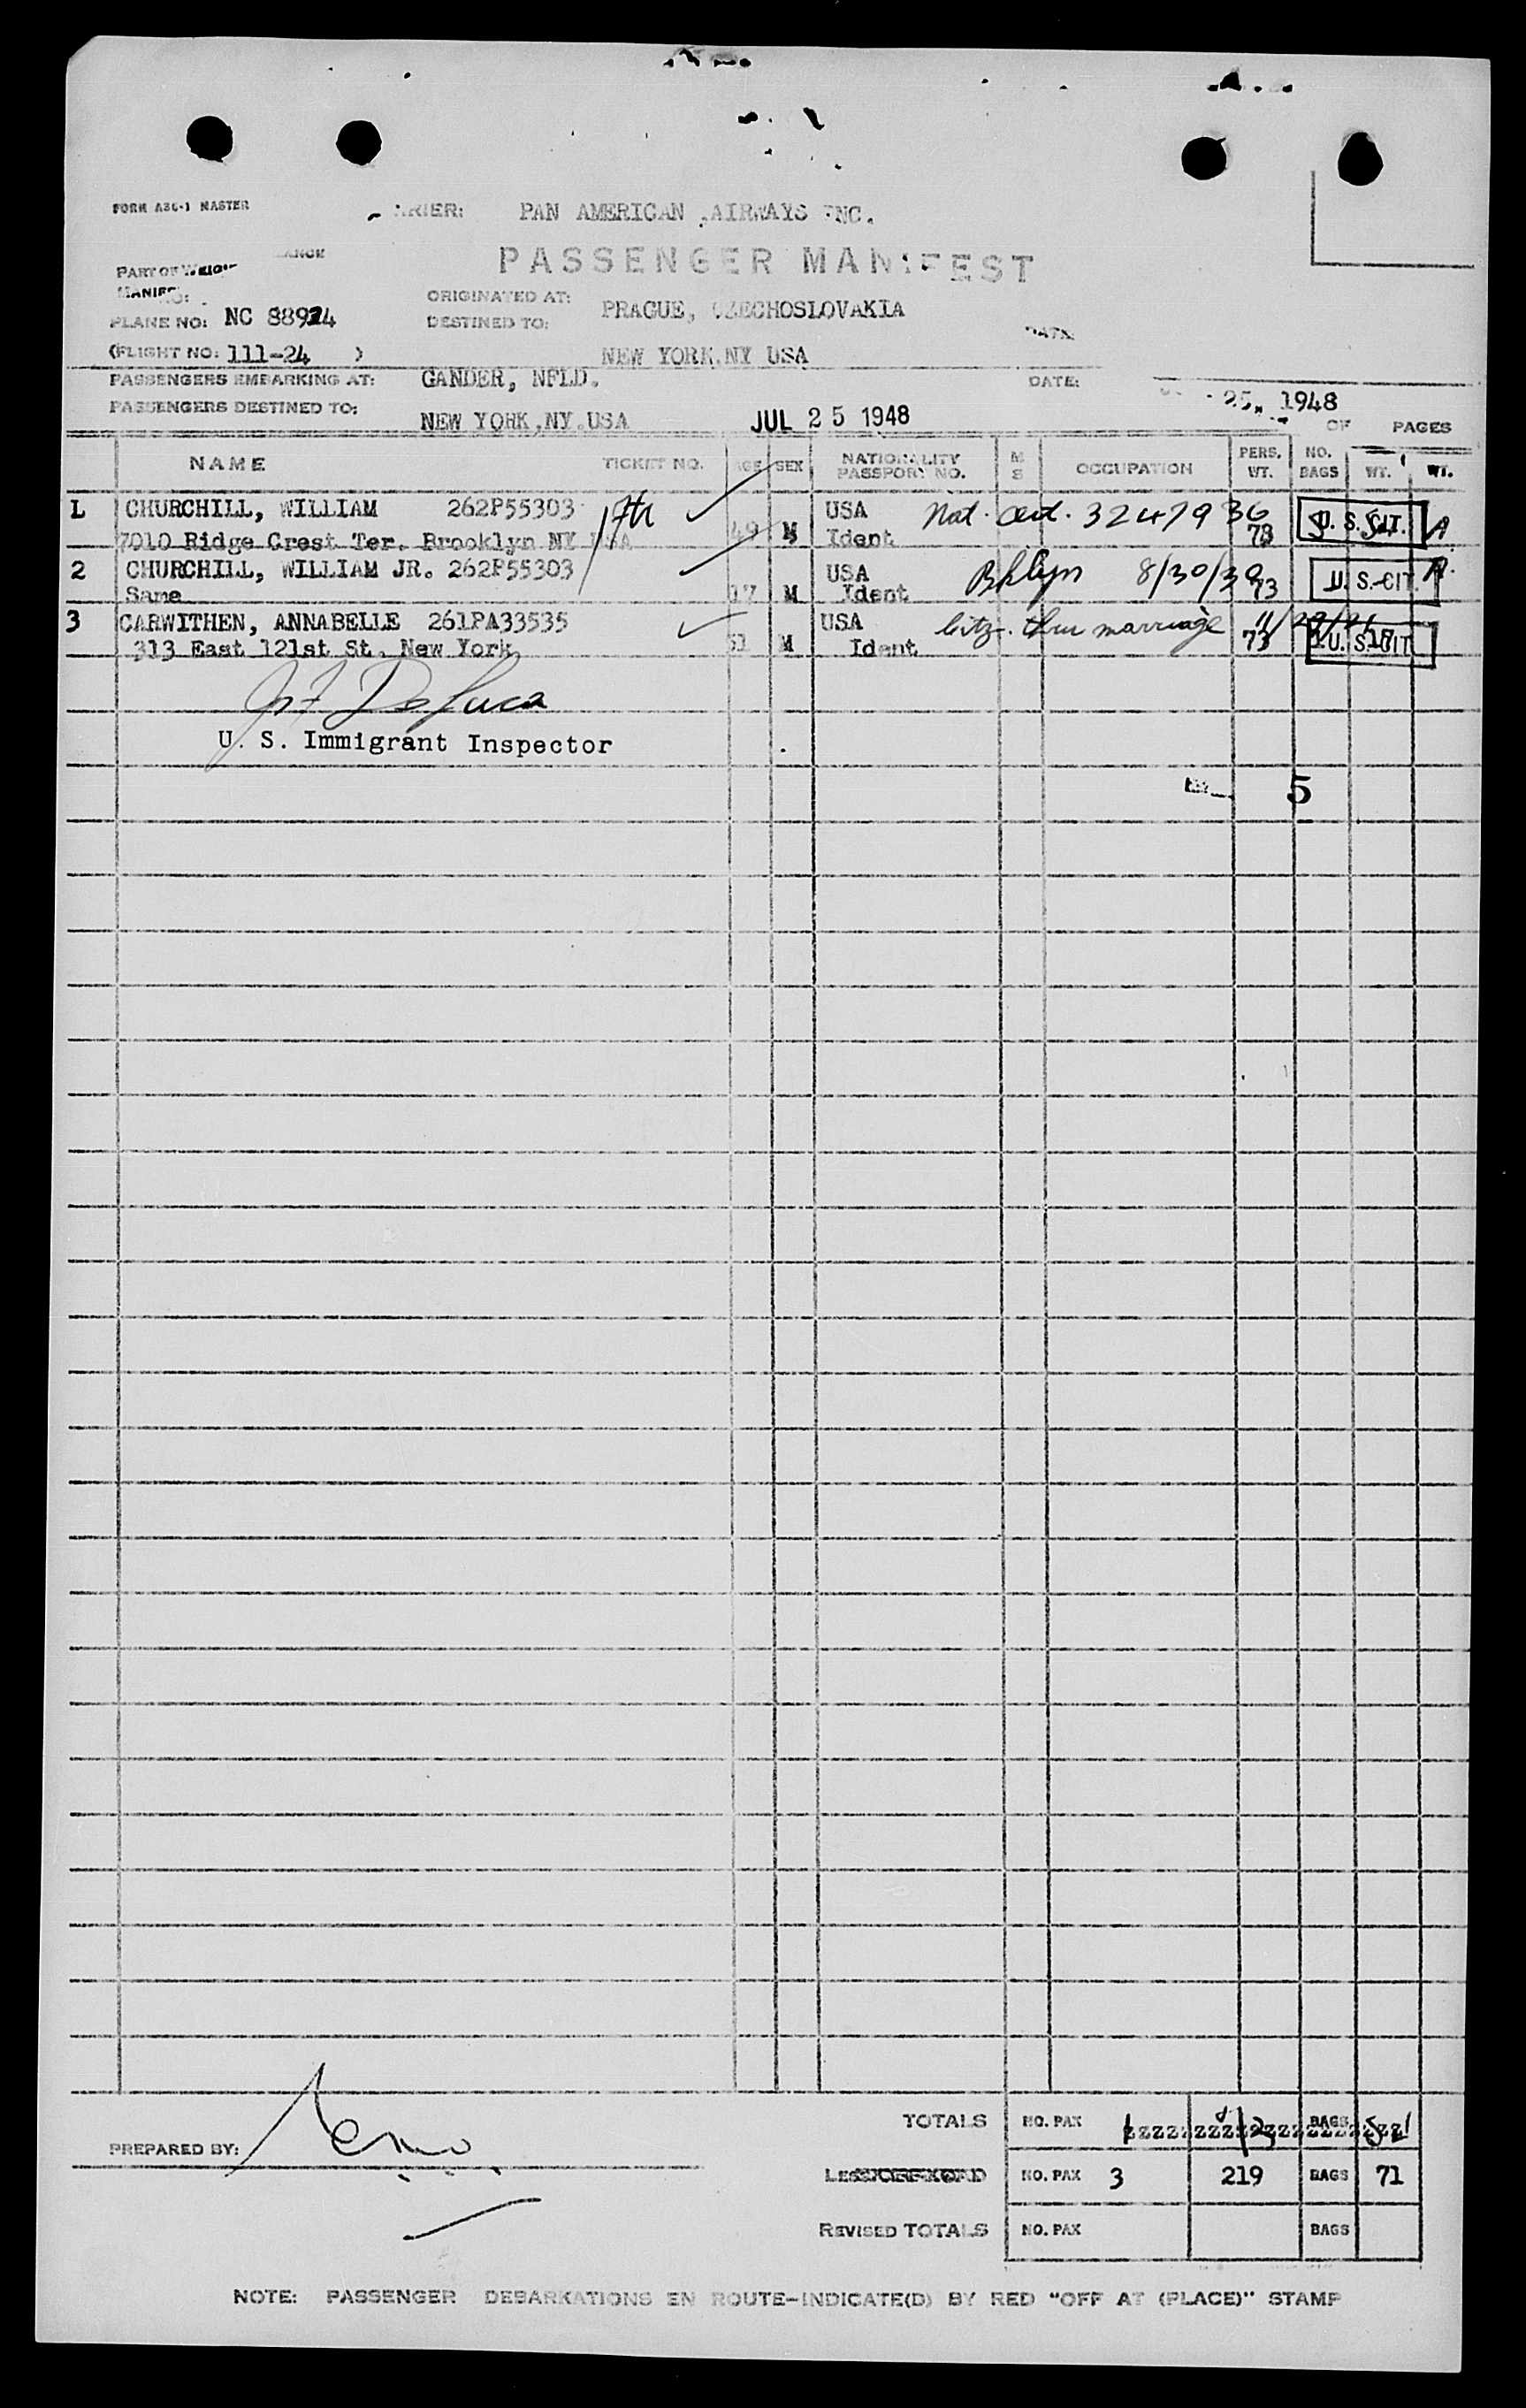 FORM A36-1 MASTER
PAN AMERICAN AIRWAYS INC.
PASSENGER MANIFEST
PART OF
PLANE NO: NC 88924
(FLIGHT NO: 111-24 )
ORIGINATED AT: PRAGUE, CZECHOSLOVAKIA
DESTINED TO: NEW YORK,NY USA
PASSENGERS EMBARKING AT: GANDER, NFLD.
DATE: 25, 1948
PASSENGERS DESTINED TO: NEW YORK,NY.USA
JUL 25 1948
OF PAGES
NAME TICKET NO. AGE SEX NATIONALITY PASSPORT NO. M S OCCUPATION PERS. WT. NO. BAGS WT. WT.
1 CHURCHILL, WILLIAM 262P55303 USA Nat. Cert. 3247936 U. S. CIT. A
7010 Ridge Crest Ter. Brooklyn NY USA 49 M Ident 73
2 CHURCHILL, WILLIAM JR. 262P55303 USA Bklyn 8/30/30 U. S. CIT. A.
Same 17 M Ident 73
3 CARWITHEN, ANNABELLE 261PA33535 USA Citz. thru marriage U. S. CIT
313 East 121st St. New York 51 M Ident 73
U. S. Immigrant Inspector
5
TOTALS NO. PAX BAGS
NO. PAX 3 219 BAGS 71
REVISED TOTALS NO. PAX BAGS
PREPARED BY:
NOTE: PASSENGER DEBARKATIONS EN ROUTE-INDICATE(D) BY RED "OFF AT (PLACE)" STAMP